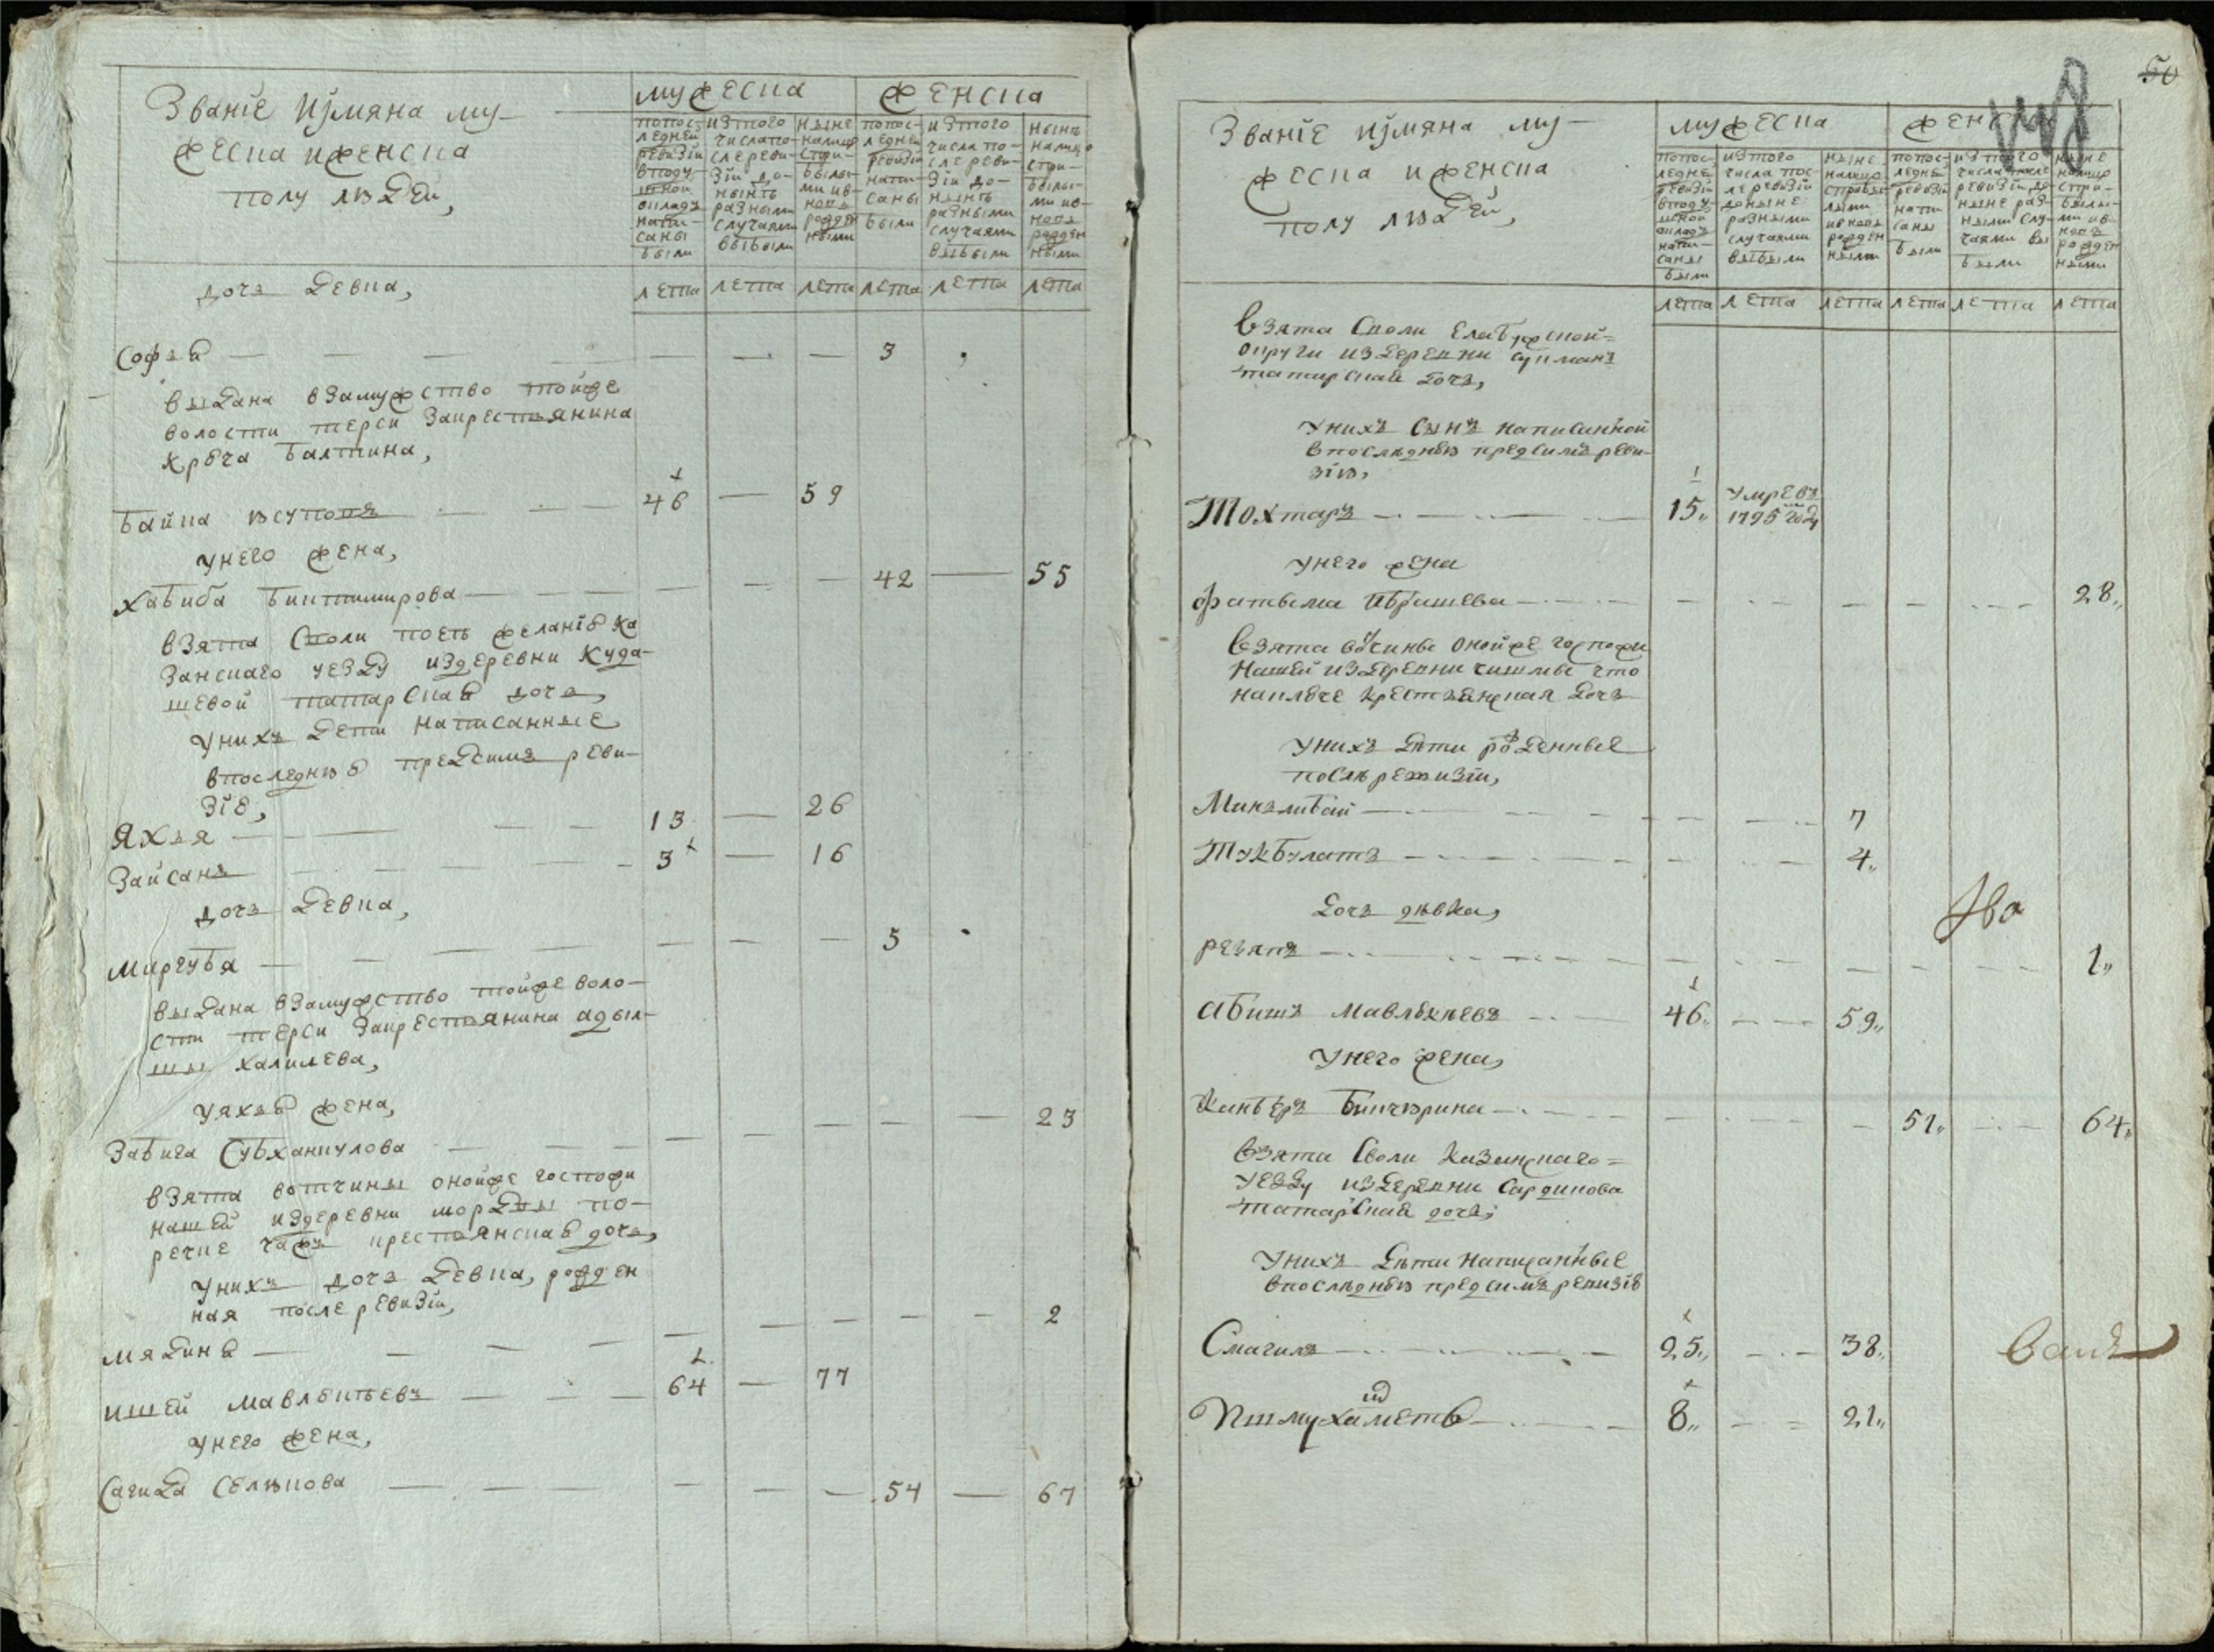 Званїе иўмяна му-
жеска иженска
полу людеи,
мужеска
женска
попос-
ледней
ревизїи
вподу-
шной
окладъ
напи-
саны
были
изтого
числапо-
слереви-
зїи до-
нынѣ
разными
случаями
выбыли
ныне
налицо
спри-
былы-
ми ив-
новь
рожден
ными
попос-
ледней
ревизїи
напи-
саны
были
изтого
числа по-
сле реви-
зїи до-
нынѣ
разными
случаями
выбыли
нынѣ
налицо
спри-
былы-
ми ив-
новь
рожден
ными
лета лета лета лета лета лета
дочь девка,
Софья 3
выдана взамужство тойже
волости терси закрестьянина
Балтина,
Байка юсуповъ 46 59
унего жена,
Хабиба Биктимирова 42 55
взята споли поеѣ желанїю ка
занскаго уезду издеревни куда-
шевой татарская дочь,
унихъ дети написанные
впоследнюю предсимъ реви-
зїю,
Яхья 13 26
Зайсанъ 3 16
дочь девка,
Миргубя 5
выдана взамужство тойже воло-
сти терси закрестьянина адыл-
шы халилева,
уяхьи жена,
Забига Субханкулова 23
взята вотчины онойже госпожи
нашей издеревни морды по-
речке крестьянская дочь,
унихъ дочь девка, рожден
ная после ревизїи,
Мядина 2
ишей мавлютьевъ 64 77
унего жена,
Сагида Селюкова 54 67
50
Званїе иўмяна му-
жеска и женска
полу людеи,
мужеска
женска
попос-
ледней
ревизїи
вподу-
шной
окладъ
напи-
саны
были
изтого
числа пос-
ле ревизїи
доныне
разными
случаями
выбыли
ныне
налицо
сприбы-
лыми
ивновь
рожден
ными
попос-
ледней
ревизїи
напи-
саны
были
изтого
числа после
ревизїи до-
ныне раз-
ными слу-
чаями вы
были
ныне
налицо
спри-
былы-
ми ив-
новь
рожден
ными
лета лета лета лета лета лета
взята споли Елабужской=
округи издеревни
татарская дочь,
унихъ сынъ написанной
впослѣднюю предсимъ реви-
зїю,
Тохтаръ 15,, умревъ
1795 году
унего жена
Фатьма Ибрашева 28,,
взята вочины онойже госпожи
нашей издеревни чишмы что
наключе крестьянская дочь
унихъ дѣти рожденные
послѣ ревизїи,
Минзлибай 7
Тукбулатъ 4,,
дочь дѣвка,
резяпъ 1,,
Абишъ 46,, 59,,
унего жена,
Бикчюрина 51,, 64,,
взята споли казанскаго=
уезду издеревни Сардинова
татарская дочь,
унихъ дѣти написанные
впослѣднюю предсимъ ревизїю
Смагилъ 25,, 38,,
Ишмухаметь 8,, 21,,